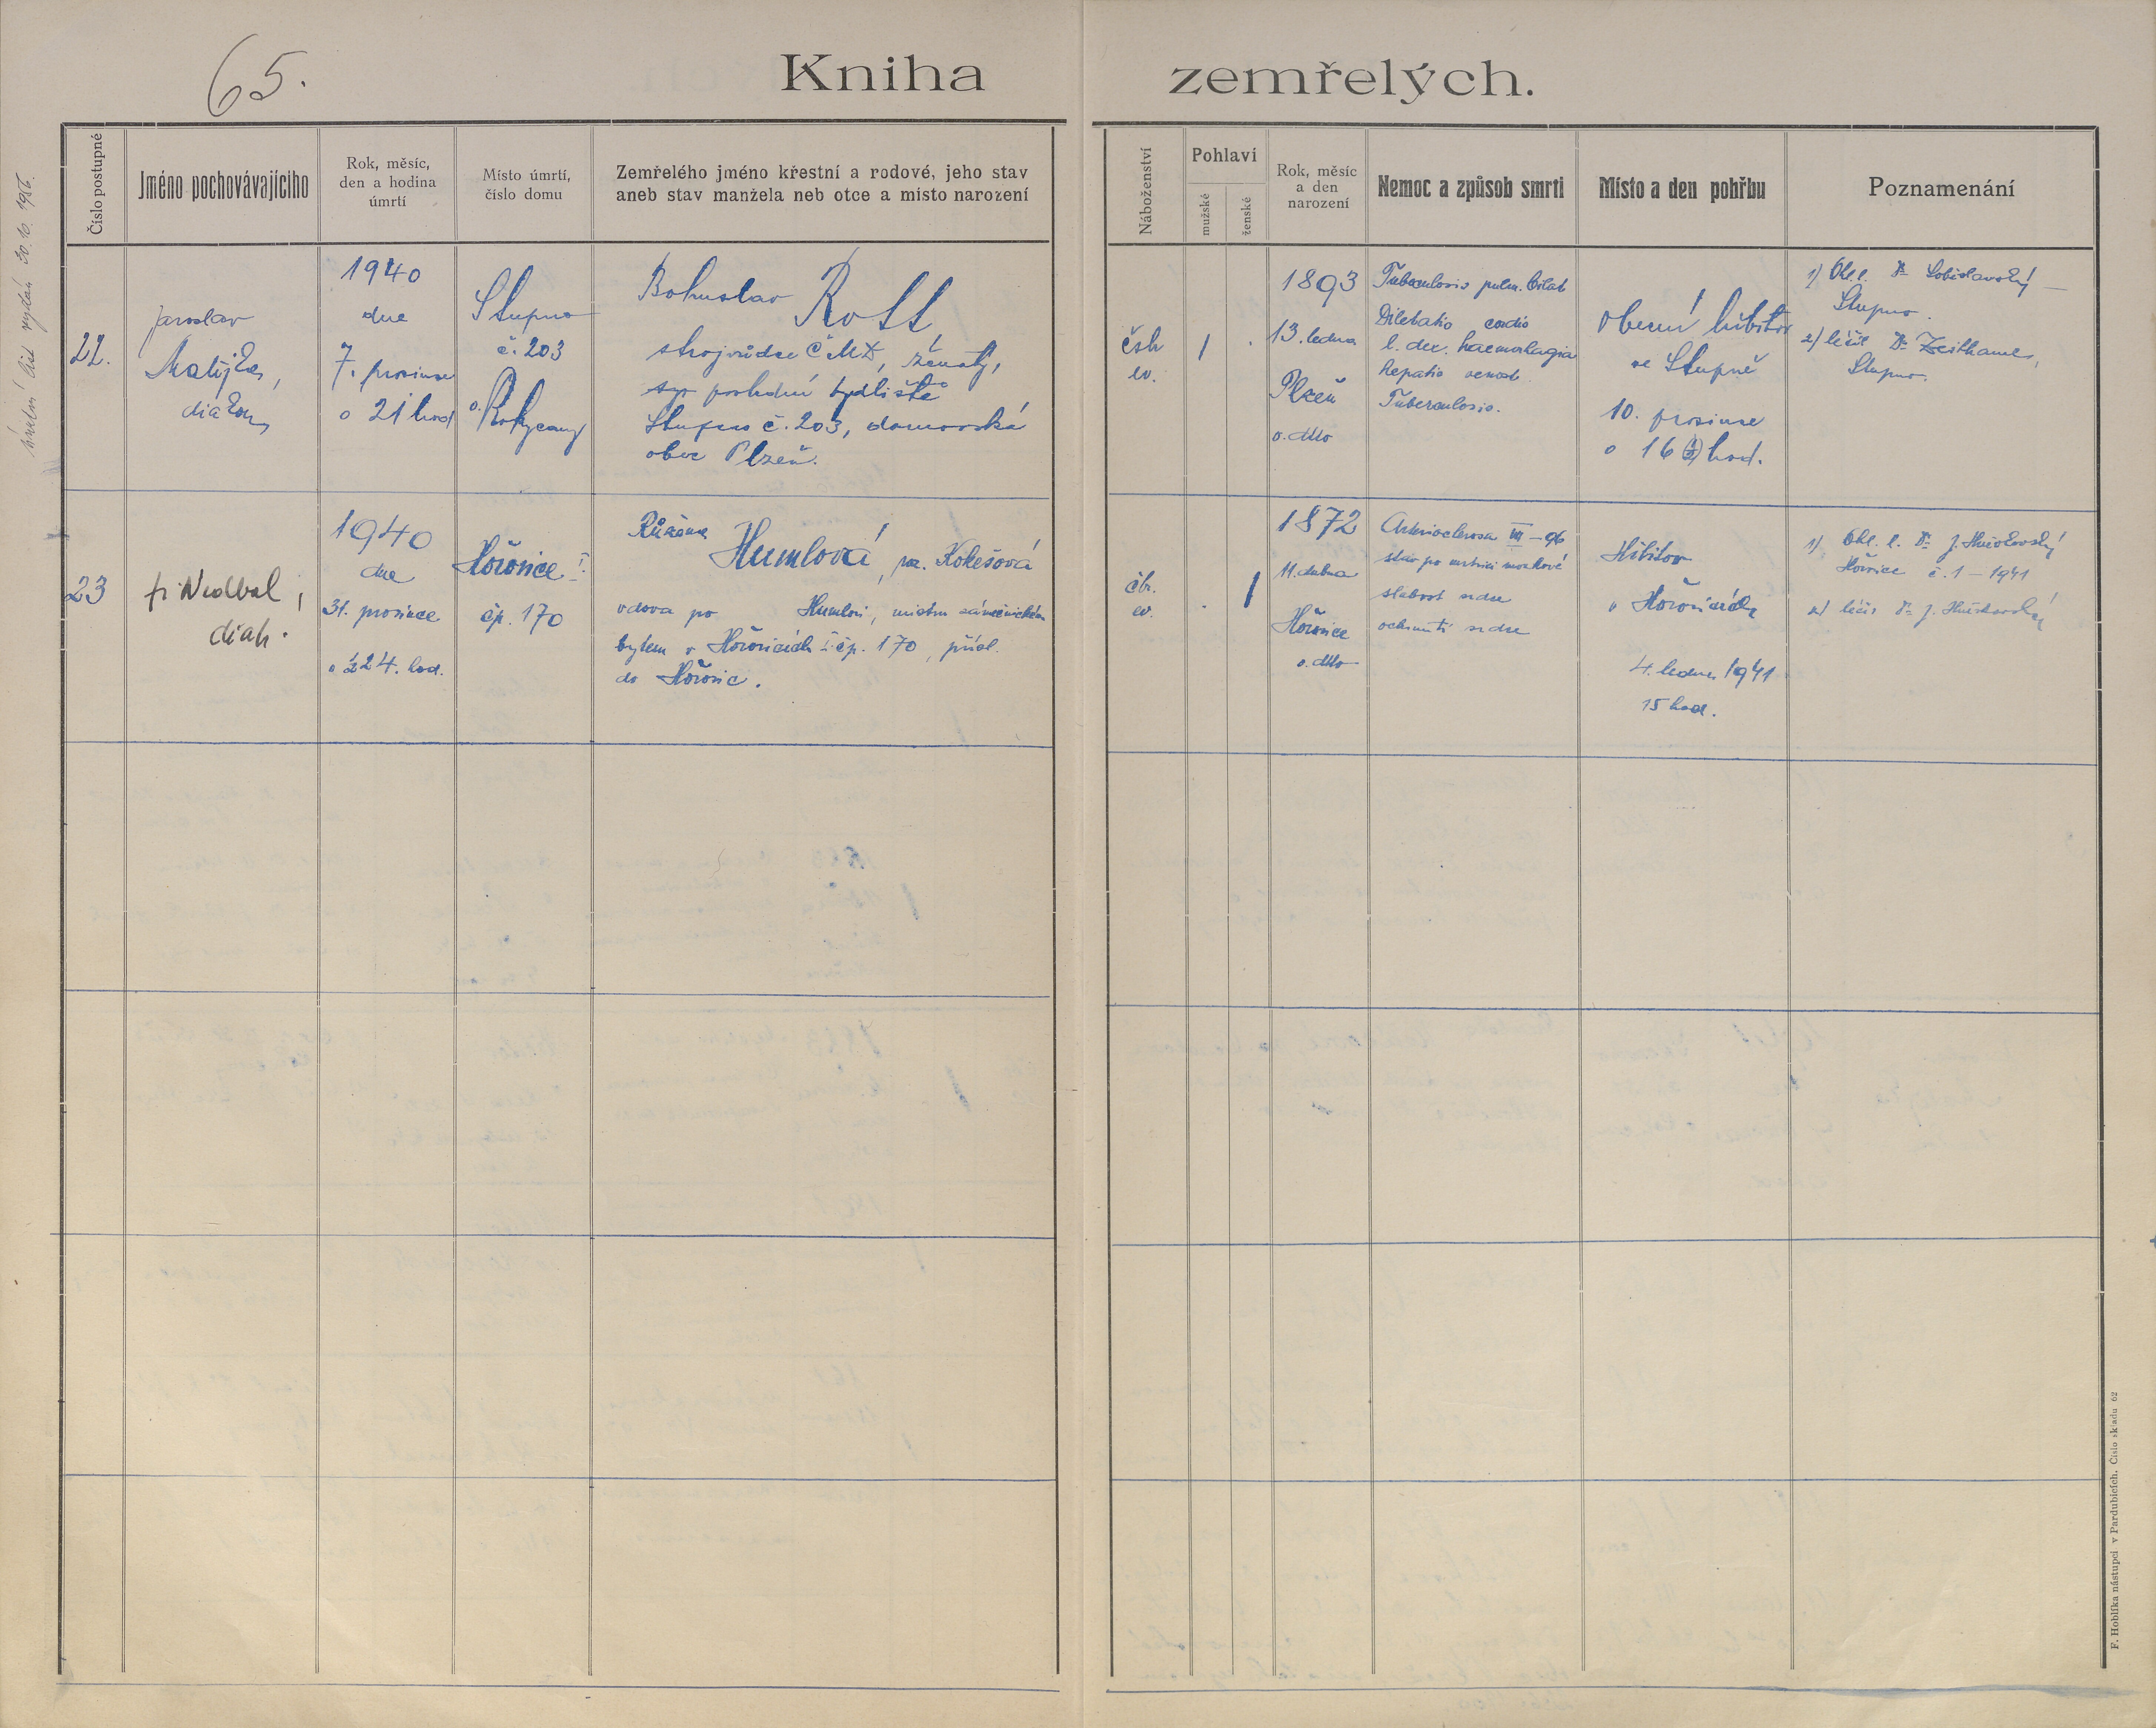 65.
Kniha zemřelých.
Číslo postupné
Jméno pochovávajícího
Rok, měsíc,
den a hodina
úmrtí
Místo úmrtí,
číslo domu
Zemřelého jméno křestní a rodové, jeho stav
aneb stav manžela neb otce a místo narození
Náboženství
Pohlaví
mužské
ženské
Rok, měsíc
a den
narození
Nemoc a způsob smrti
Místo a den pohřbu
Poznamenání
úmrtní list vydán 30. 10. 1956.
22.
Jaroslav
Matějka,
diakon
1940
dne
7. prosince
o 21 hod
Stupno
č. 203
o. Rokycany
Bohuslav Rott,
strojvůdce ČMD, ženatý,
syn poslední bydliště
Stupno č. 203, domovská
obec Plzeň.
čsh
ev.
1
1893
13. ledna
Plzeň
o. dtto
Tuberculosis pulm. bilat
Dilatatio cordis
l. dex. haemorhagia
hepatis
Tuberculosis.
Obecní hřbitov
ve Stupně
10. prosince
o 16 hod.
1) Ohl. l. Dr
Stupno.
2) léčil Dr Zeithaml,
Stupno.
23
fr Nedbal,
diak.
1940
dne
31. prosince
o 24. hod.
Hořovice I.
čp. 170
Růžena
Humlová, roz. Kokešová
vdova po Humlovi, mistru zámečnickém
bytem v Hořovicích I čp. 170, přísl.
do Hořovic.
čbr.
ev.
1
1872
11. dubna
Hořovice
o. dtto
Arteriosclerosa III - 96
stav po mrtvici mozkové
slabost srdce
ochrnutí srdce
Hřbitov
v Hořovicích
4. ledna 1941
15 hod.
1) Ohl. l. Dr J.
Hořovice č. 1 - 1941
2) léčil Dr J.
F. Hoblíka nástupci v Pardubicích. Číslo skladu 62